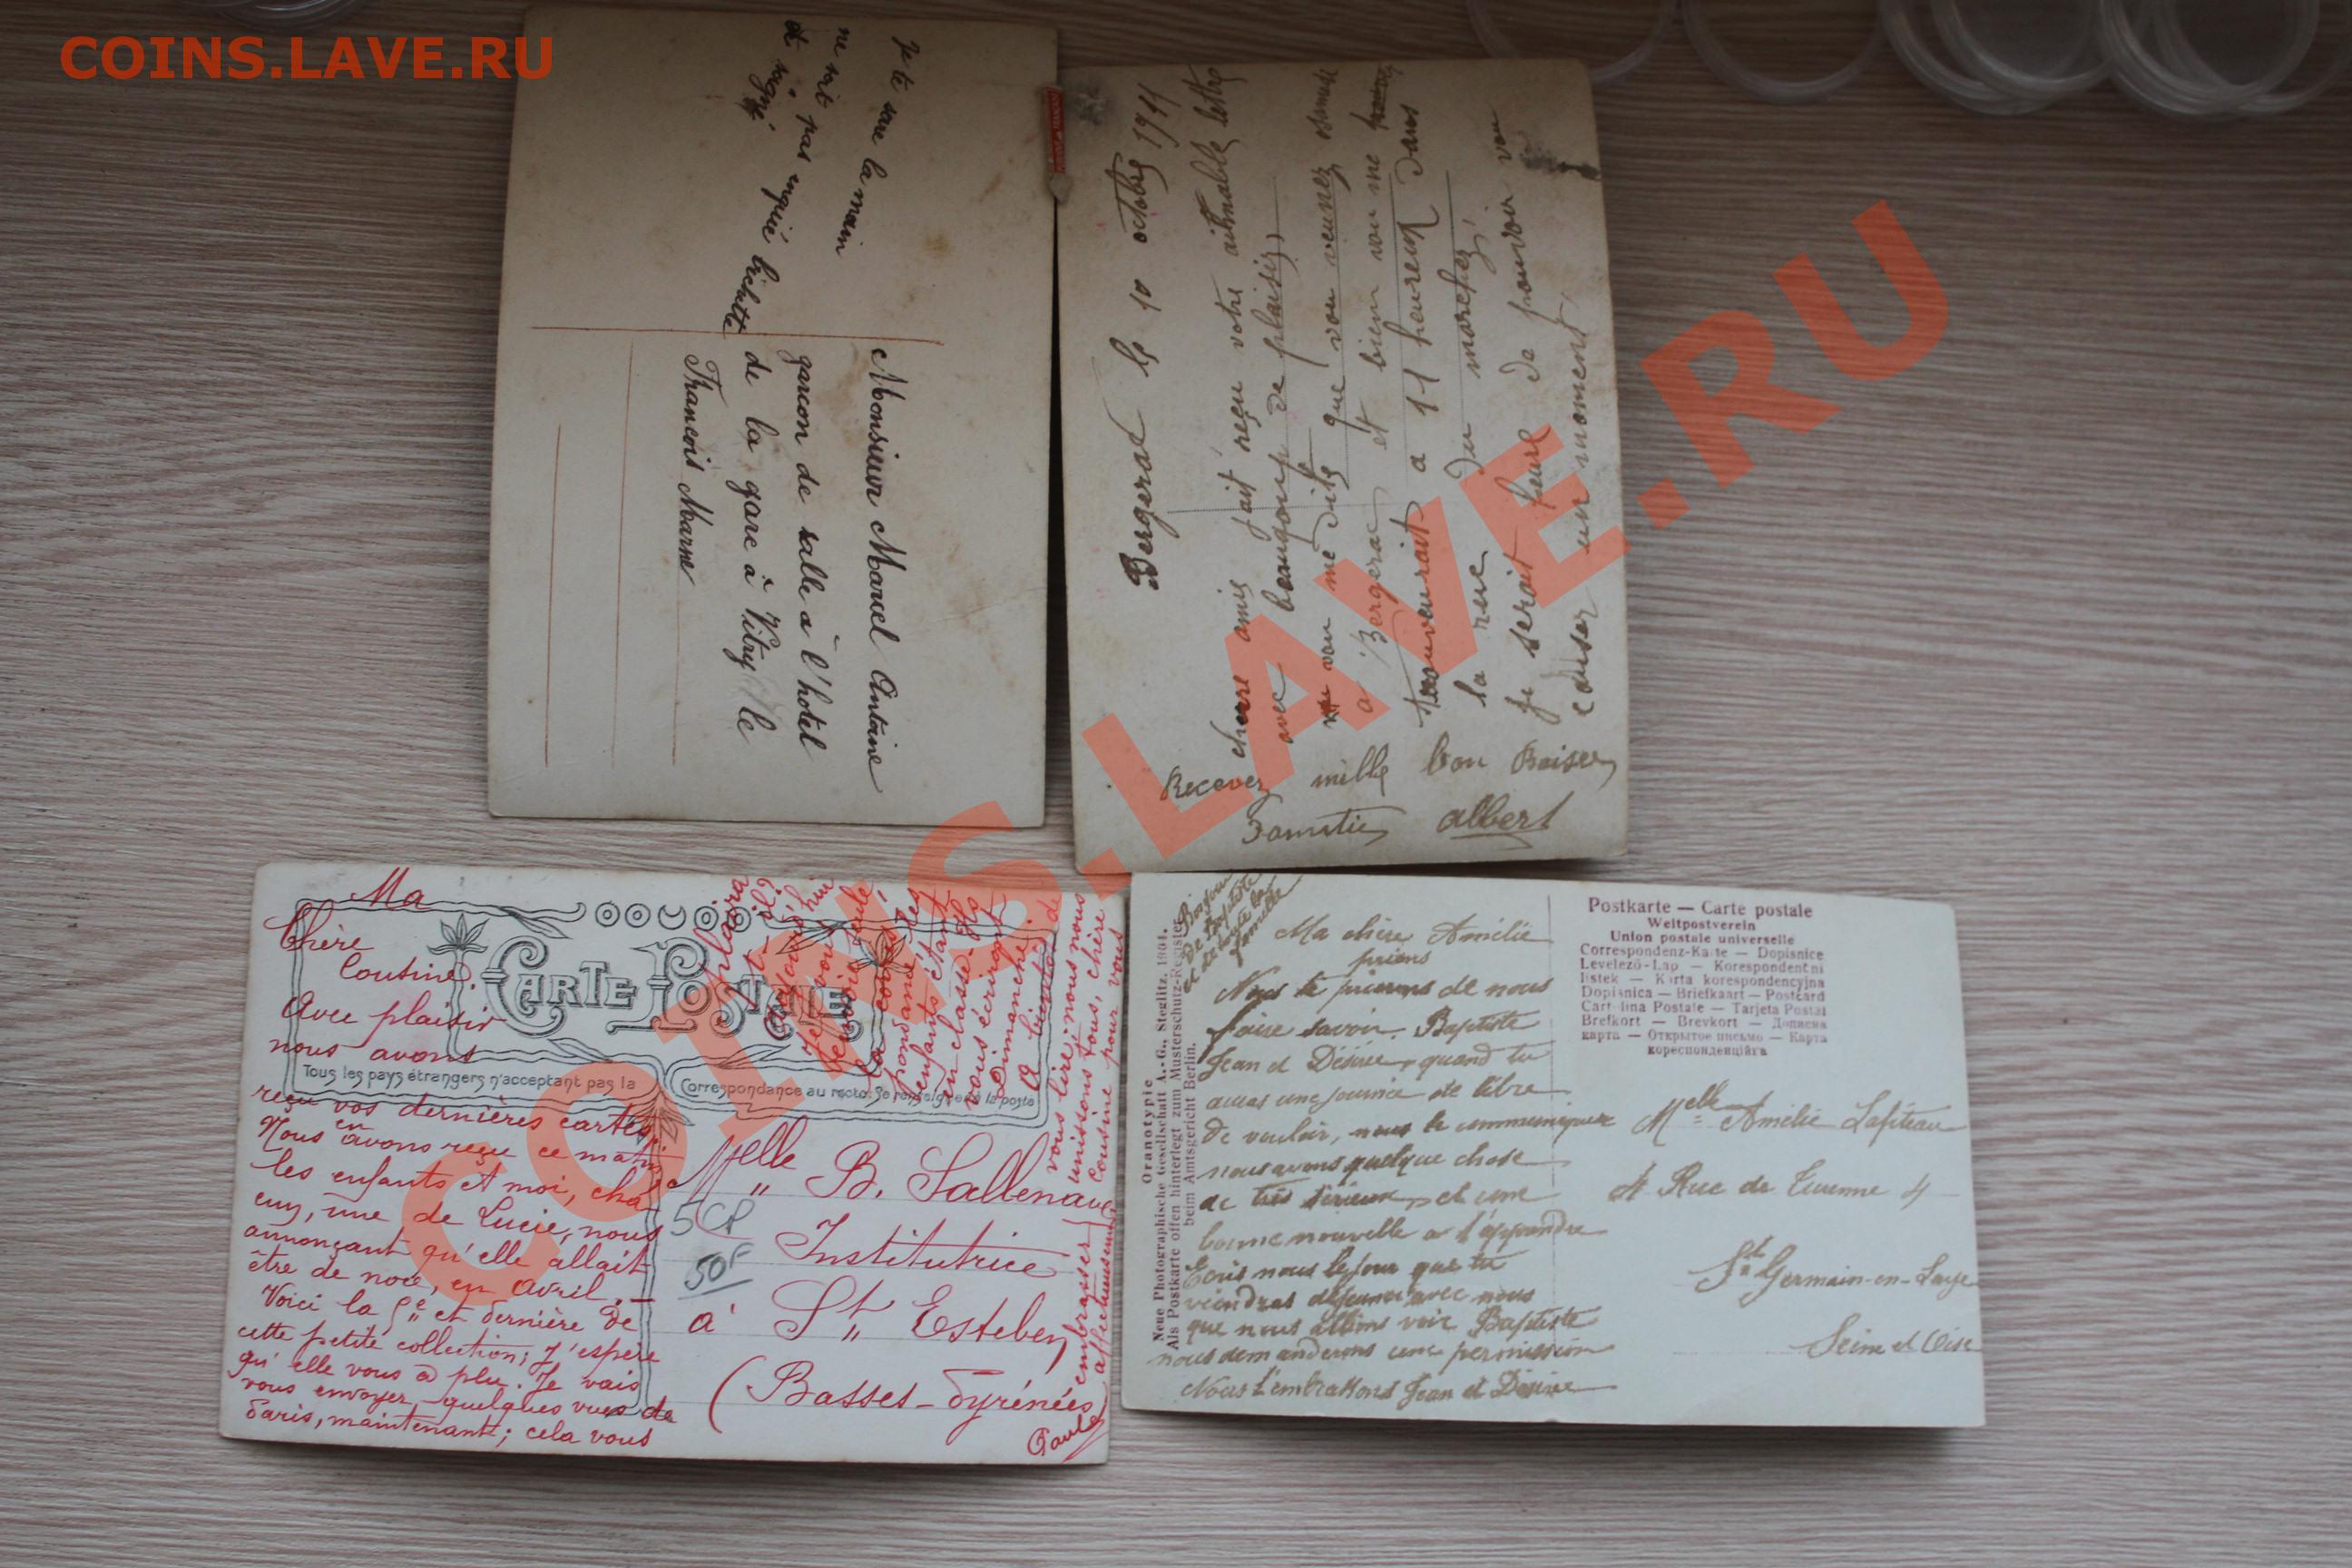 COINS.LAVE.RU
Je te serre la main
ne soit pas inquié bichette
et soigné
Monsieur Marcel Antoine
garcon de salle a l'hotel
de la gare à Vitry le
Francois Marne
Bergerac le 10 octobre 1911
chere amie fait reçu votre aihmable lettre
avec beaucoup de plaisir
vou me dite que vou venez
a Bergerac et bien vou me
trouverait a 11 heureux dans
la rue du marchez,
je serait heure de pouvoir vou
causer un moment,
Recever mille bon Baiser
albert
Ma
Chère
Cousine,
Avec plaisir
nous avons
reçu vos dernières cartes.
Nous en avons reçu ce matin
les enfants et moi, cha
cun, une de Lucie, nous
annonçant qu'elle allait
être de noce, en Avril. –
Voici la 5e et dernière de
cette petite collection; J'espère
qu'elle vous a plu. Je vais
vous envoyer, quelques vues de
Paris, maintenant; cela vous
plaira
la corres
pondance, les
enfants étant
en classe. Ils
vous écriront
Dimanche.
A bientôt de
vous lire; nous nous
unissons tous, chère
Cousine pour vous
embrasser
affectueusement
Paule
CARTE POSTALE
Tous les pays étrangers n'acceptant pas la
Correspondance au recto. Se renseigner à la poste
Melle B. Sallenave
5 CP
Institutrice
50F
à St Esteben
(Basses-Pyrénées
Bonjour
de Baptiste
et de toute la
famille
Ma chère Amélie
prions
Nous te de nous
faire savoir. Baptiste
Jean et Désirée, quand tu
auras une journée de libre
de vouloir, nous le communiquer
nous avons quelque chose
de très sérieux, et une
bonne nouvelle a t'apprendre
Ecris nous le jour que tu
viendras déjeuner avec nous
que nous allions voir Baptiste
nous demanderons une permission
Nous t'embrassons Jean et Désirée
Oranotypie
Neue Photographische Gesellschaft A.-G., Steglitz. 1904.
Als Postkarte offen hinterlegt zum Musterschutz-Register
beim Amtsgericht Berlin.
Postkarte — Carte postale
Weltpostverein
Union postale universelle
Correspondenz-Karte — Dopisnice
Levelező-Lap — Korespondentni
listek — Karta korespondencyjna
Dopisnica — Briefkaart — Postcard
Cartolina Postale — Tarjeta Postal
Brefkort — Brevkort — Дописна
карта — Открытое письмо — Карта
кореспонденційга
Melle Amélie Lafiteau
4 Rue de Turenne 4
St Germain-en-Laye
Seine et Oise
COINS.LAVE.RU